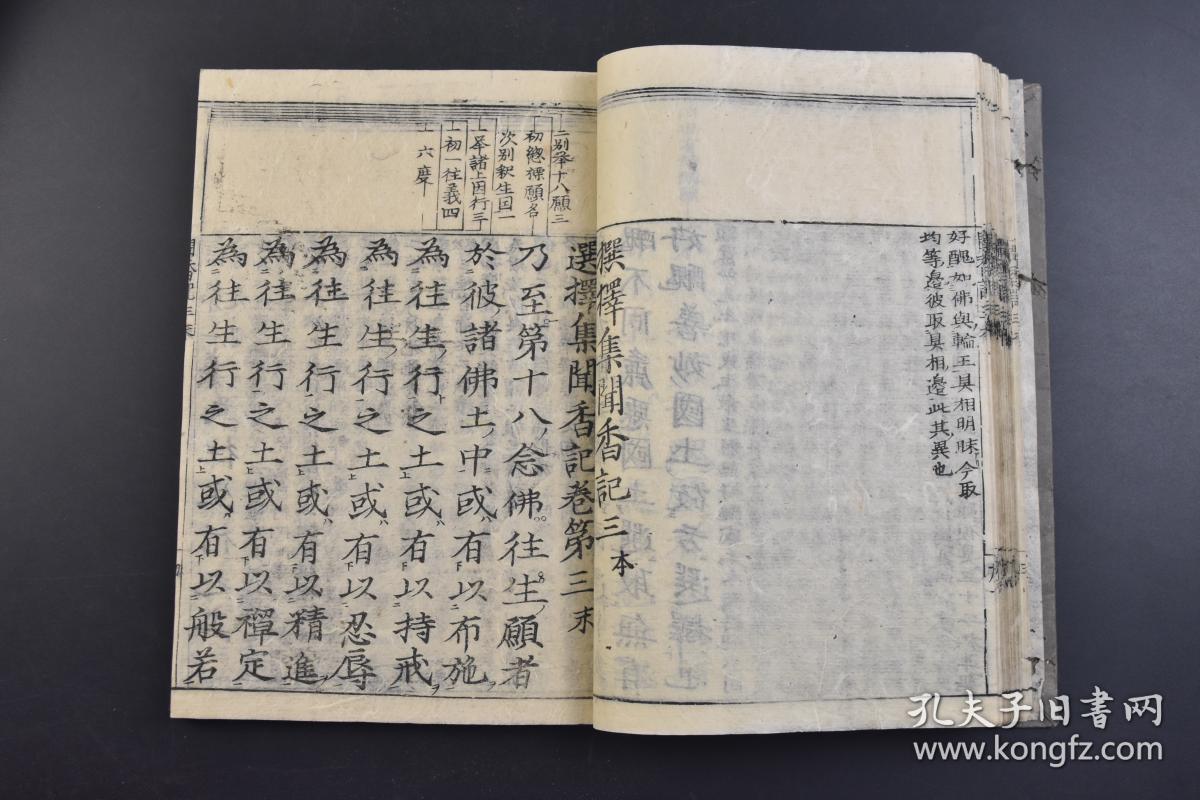 好醜如佛與輪王具相明昧今取
均等邊彼取具相邊此其異也
撰擇集聞香記三本
二別舉十八願三
初總標願名
次別釈生因一
舉諸上因行三
初一往義四
六度
選擇集聞香記卷第三末
乃至第十八念佛往生願者
於彼諸佛土中或有以布施
為往生行之土或有以持戒
為往生行之土或有以忍辱
為往生行之土或有以精進
為往生行之土或有以禪定
為往生行之土或有以般若
孔夫子旧书网
www.kongfz.com